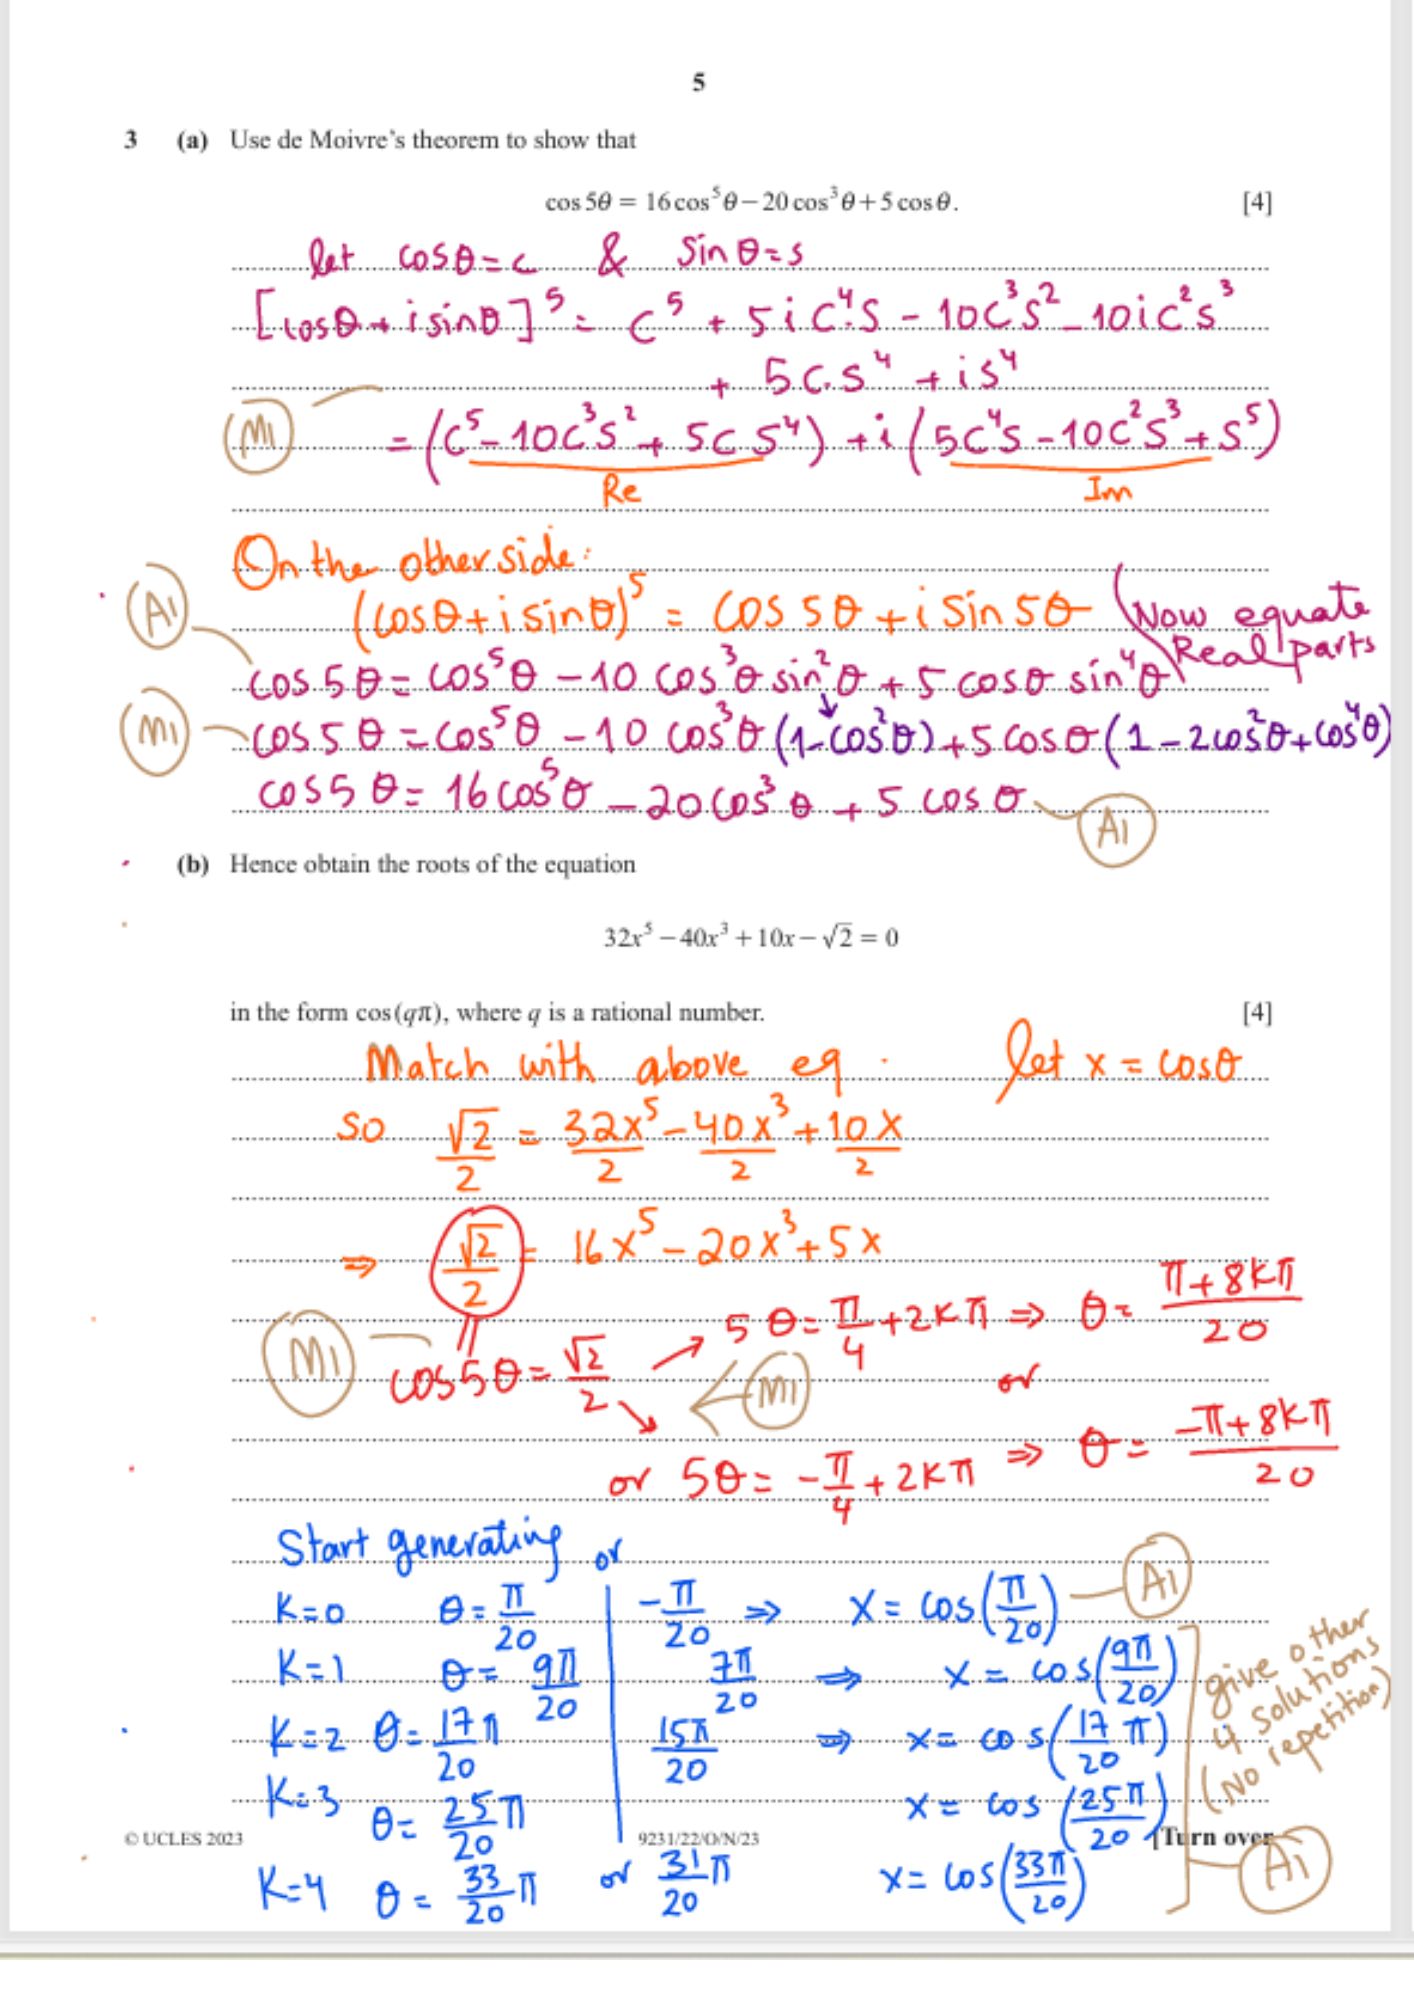 5
3 (a) Use de Moivre's theorem to show that
cos 5θ = 16 cos⁵θ − 20 cos³θ + 5 cos θ. [4]
let cosθ = c & sinθ = s
[cosθ + i sinθ]⁵ = c⁵ + 5ic⁴s − 10c³s² − 10ic²s³
+ 5c.s⁴ + is⁴
M1 = (c⁵ − 10c³s² + 5cs⁴) + i(5c⁴s − 10c²s³ + s⁵)
Re Im
On the other side:
A1 (cosθ + i sinθ)⁵ = cos 5θ + i sin 5θ (Now equate
Real parts
cos 5θ = cos⁵θ − 10 cos³θ sin²θ + 5 cosθ sin⁴θ
M1 cos 5θ = cos⁵θ − 10 cos³θ (1 − cos²θ) + 5 cosθ (1 − 2cos²θ + cos⁴θ)
cos 5θ = 16 cos⁵θ − 20 cos³θ + 5 cosθ A1
(b) Hence obtain the roots of the equation
32x⁵ − 40x³ + 10x − √2 = 0
in the form cos(qπ), where q is a rational number. [4]
Match with above eq. let x = cosθ
so √2/2 = 32x⁵/2 − 40x³/2 + 10x/2
⇒ √2/2 = 16x⁵ − 20x³ + 5x
5θ = π/4 + 2kπ ⇒ θ = (π + 8kπ)/20
M1 cos5θ = √2/2 M1 or
or 5θ = −π/4 + 2kπ ⇒ θ = (−π + 8kπ)/20
Start generating or
K=0 θ = π/20 −π/20 ⇒ x = cos(π/20) A1
K=1 θ = 9π/20 7π/20 ⇒ x = cos(9π/20)
K=2 θ = 17π/20 15π/20 ⇒ x = cos(17/20 π)
K=3 θ = 25π/20 x = cos(25π/20)
give other
4 solutions
(No repetition)
© UCLES 2023 9231/22/O/N/23 [Turn over
K=4 θ = 33/20 π or 31π/20 x = cos(33π/20) A1